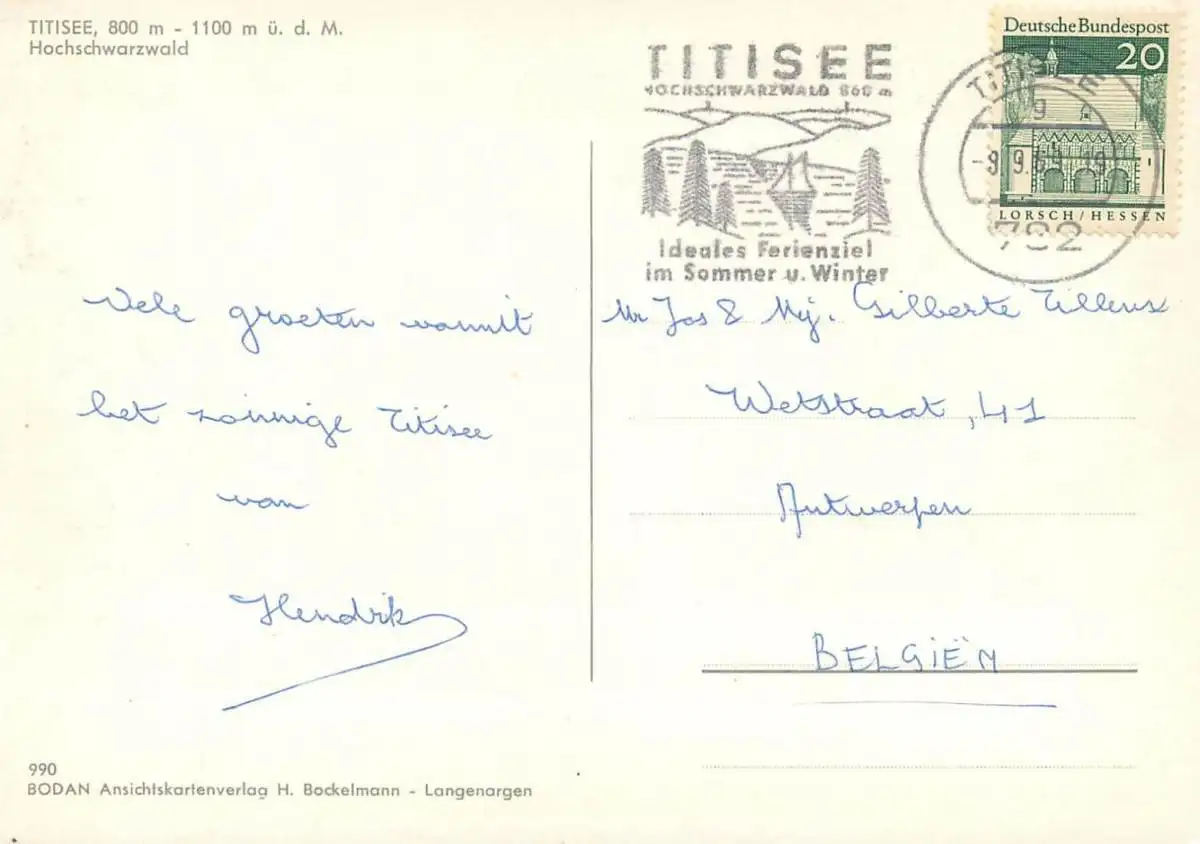 TITISEE, 800 m - 1100 m ü. d. M.
Hochschwarzwald
TITISEE
HOCHSCHWARZWALD 860 m
Ideales Ferienziel
im Sommer u. Winter
Deutsche Bundespost
20
LORSCH/HESSEN
TITISEE
g
-9.9.69-19
782
Vele groeten vanuit
het zonnige Titisee
van
Hendrik
Mr Jos & Mej. Gilberte Tillens
Wetstraat, 41
Antwerpen
BELGIËN
990
BODAN Ansichtskartenverlag H. Bockelmann - Langenargen